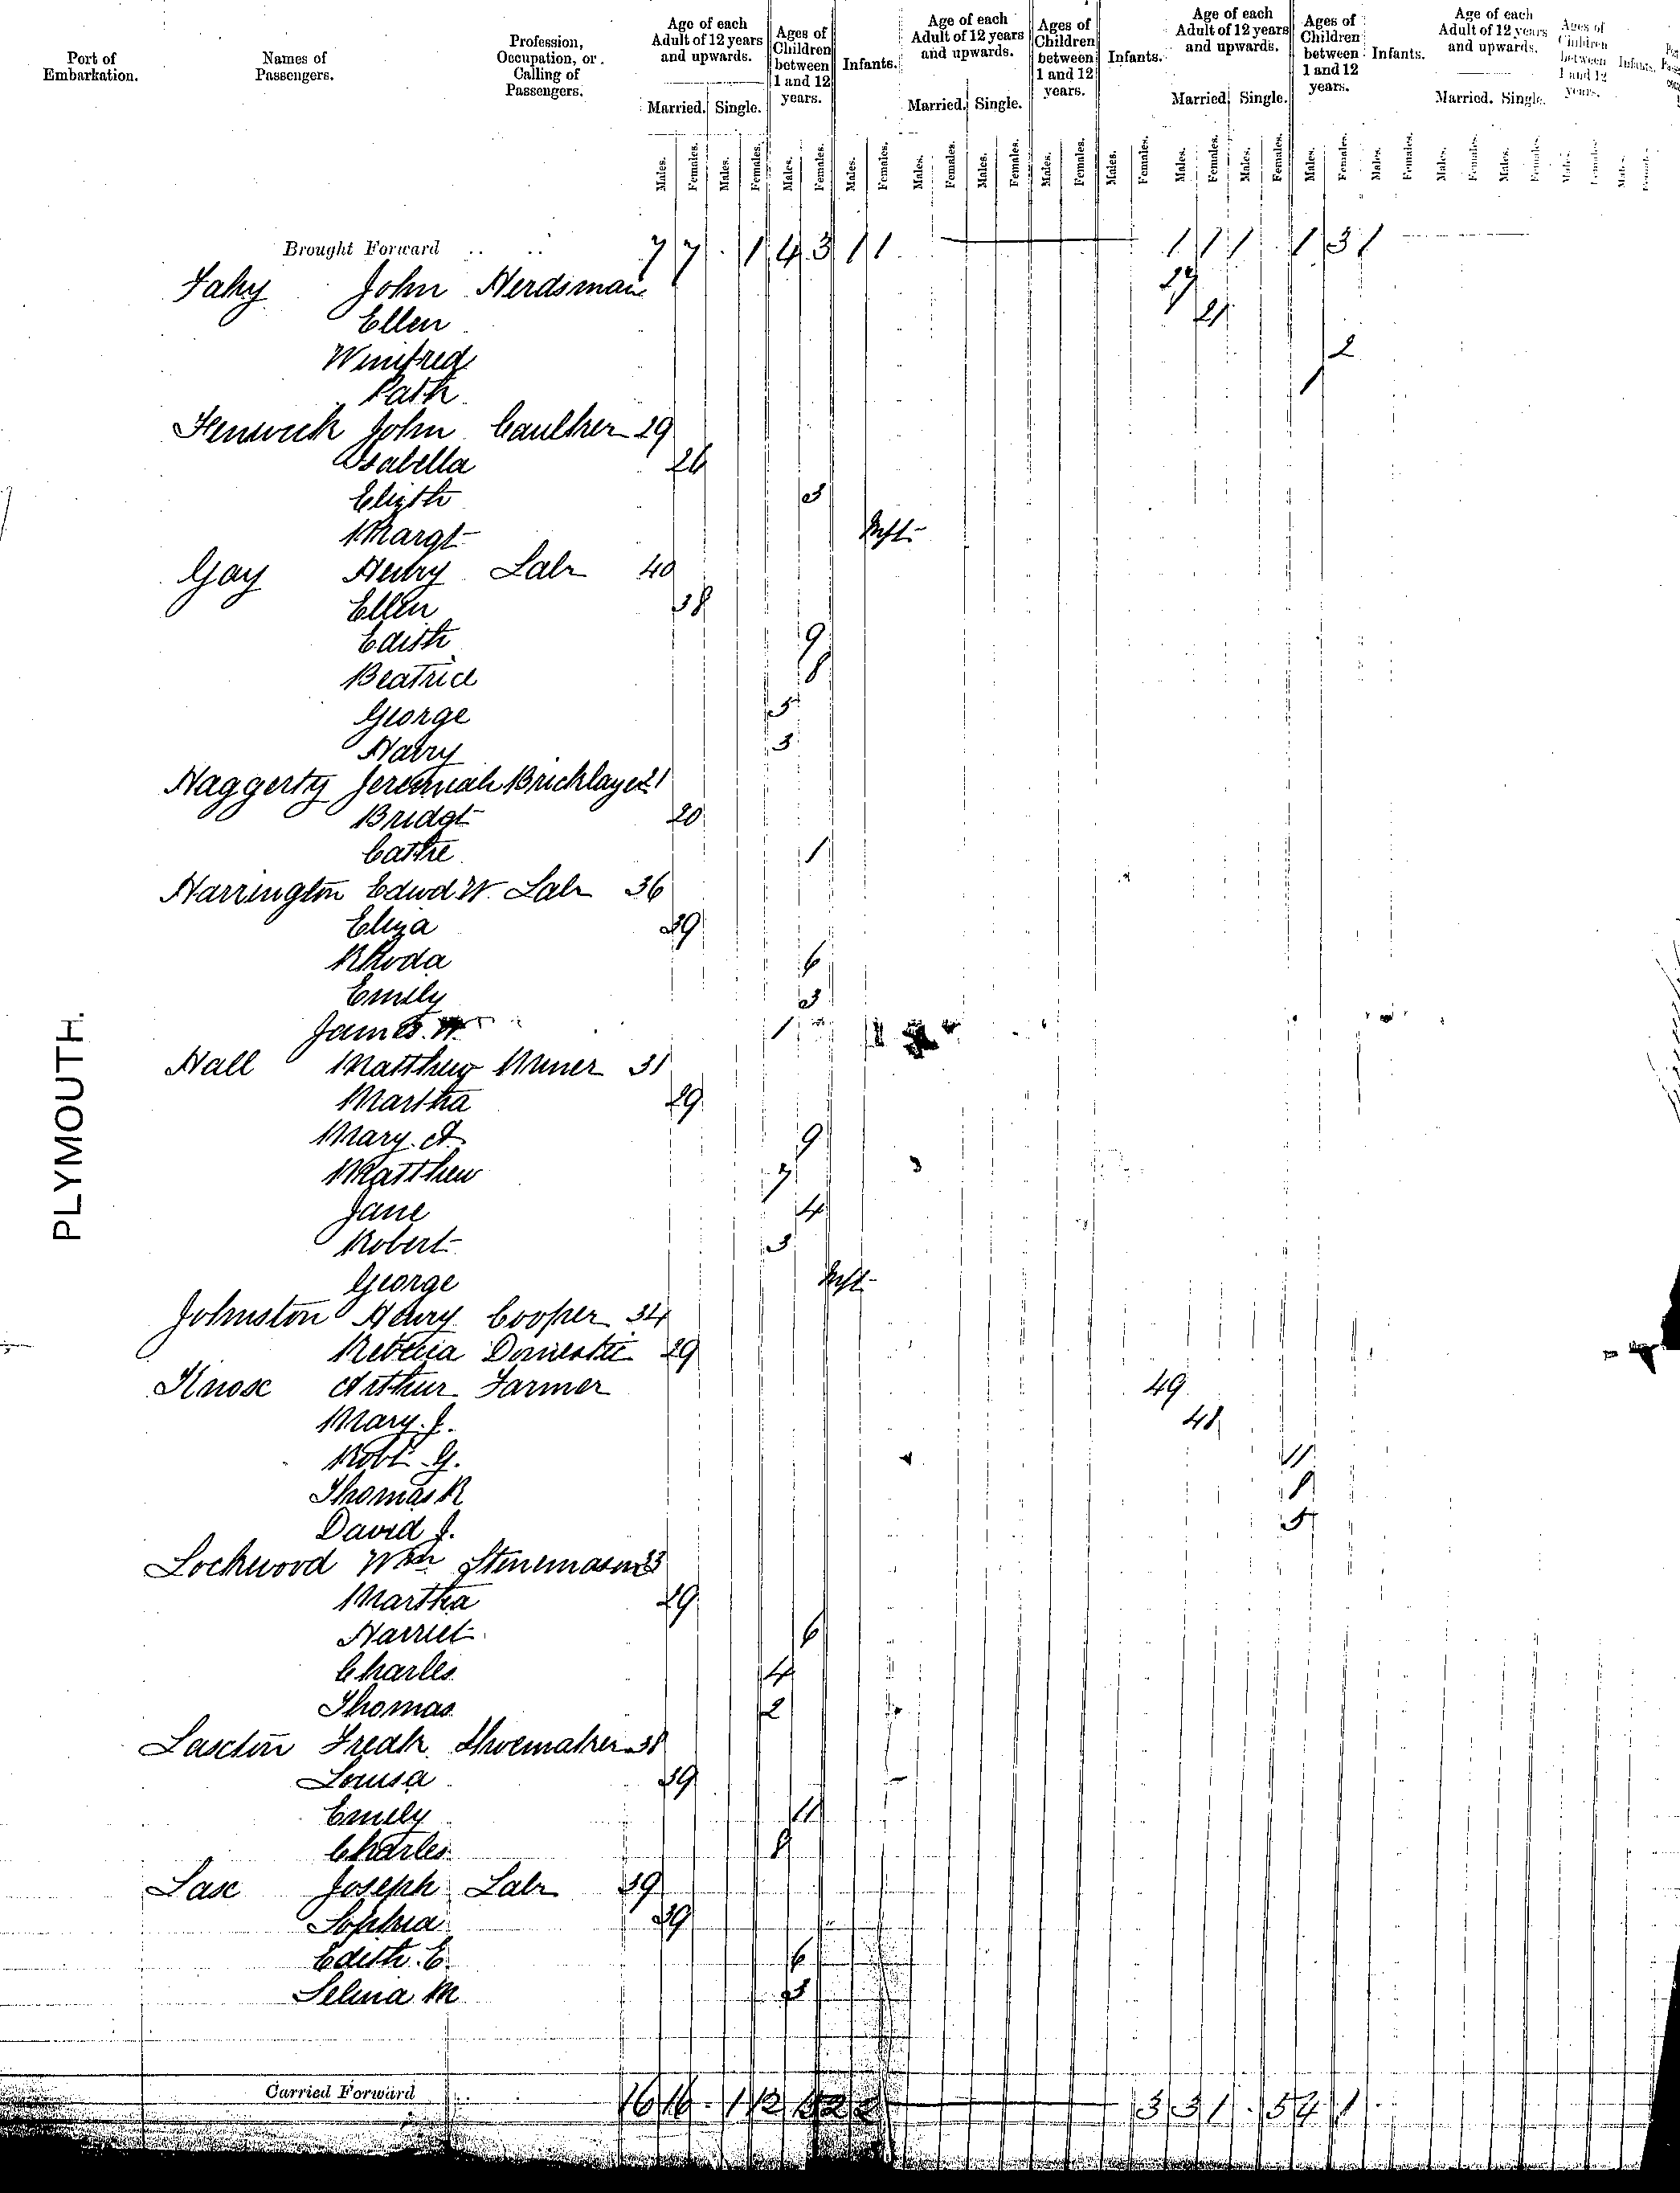 Port of Embarkation. Names of Passengers. Profession, Occupation, or Calling of Passengers. Age of each Adult of 12 years and upwards. Married. Single. Ages of Children between 1 and 12 years. Infants. Age of each Adult of 12 years and upwards. Married. Single. Ages of Children between 1 and 12 years. Infants. Age of each Adult of 12 years and upwards. Married. Single. Ages of Children between 1 and 12 years. Infants. Age of each Adult of 12 years and upwards. Married. Single. Ages of Children between 1 and 12 years. Infants.
Males. Females. Males. Females. Males. Females. Males. Females. Males. Females. Males. Females. Males. Females. Males. Females. Males. Females. Males. Females. Males. Females. Males. Females. Males. Females. Males. Females. Males. Females. Males. Females.
Brought Forward .. .. 7 7 . 1 4 3 1 1 1 1 1 . 1 3 1
PLYMOUTH.
Fahy John Herdsman 27
Ellen 21
Winifred 2
Patk 1
Fenwick John Caulker 29
Isabella 26
Elizth 3
Margt Inft
Gay Henry Labr 40
Ellen 38
Edith 9
Beatrice 8
George 5
Harry 3
Haggerty Jeremiah Bricklayer 21
Bridgt 20
Cathe 1
Harrington Edwd W. Labr 36
Eliza 39
Rhoda 6
Emily 3
James W. 1
Hall Matthew Miner 31
Martha 29
Mary A 9
Matthew 7
Jane 4
Robert 3
George Inft
Johnston Henry Cooper 34
Rebecca Domestic 29
Knox Arthur Farmer 49
Mary J. 48
Robt G. 11
Thomas R 8
David J. 5
Lockwood Wm Stonemason 33
Martha 29
Harriet 6
Charles 4
Thomas 2
Laxton Fredk Shoemaker 38
Louisa 39
Emily 11
Charles 8
Lax Joseph Labr 39
Sophia 39
Edith E. 6
Selina M 3
Carried Forward 16 16 . 1 12 2 2 3 3 1 . 5 4 1